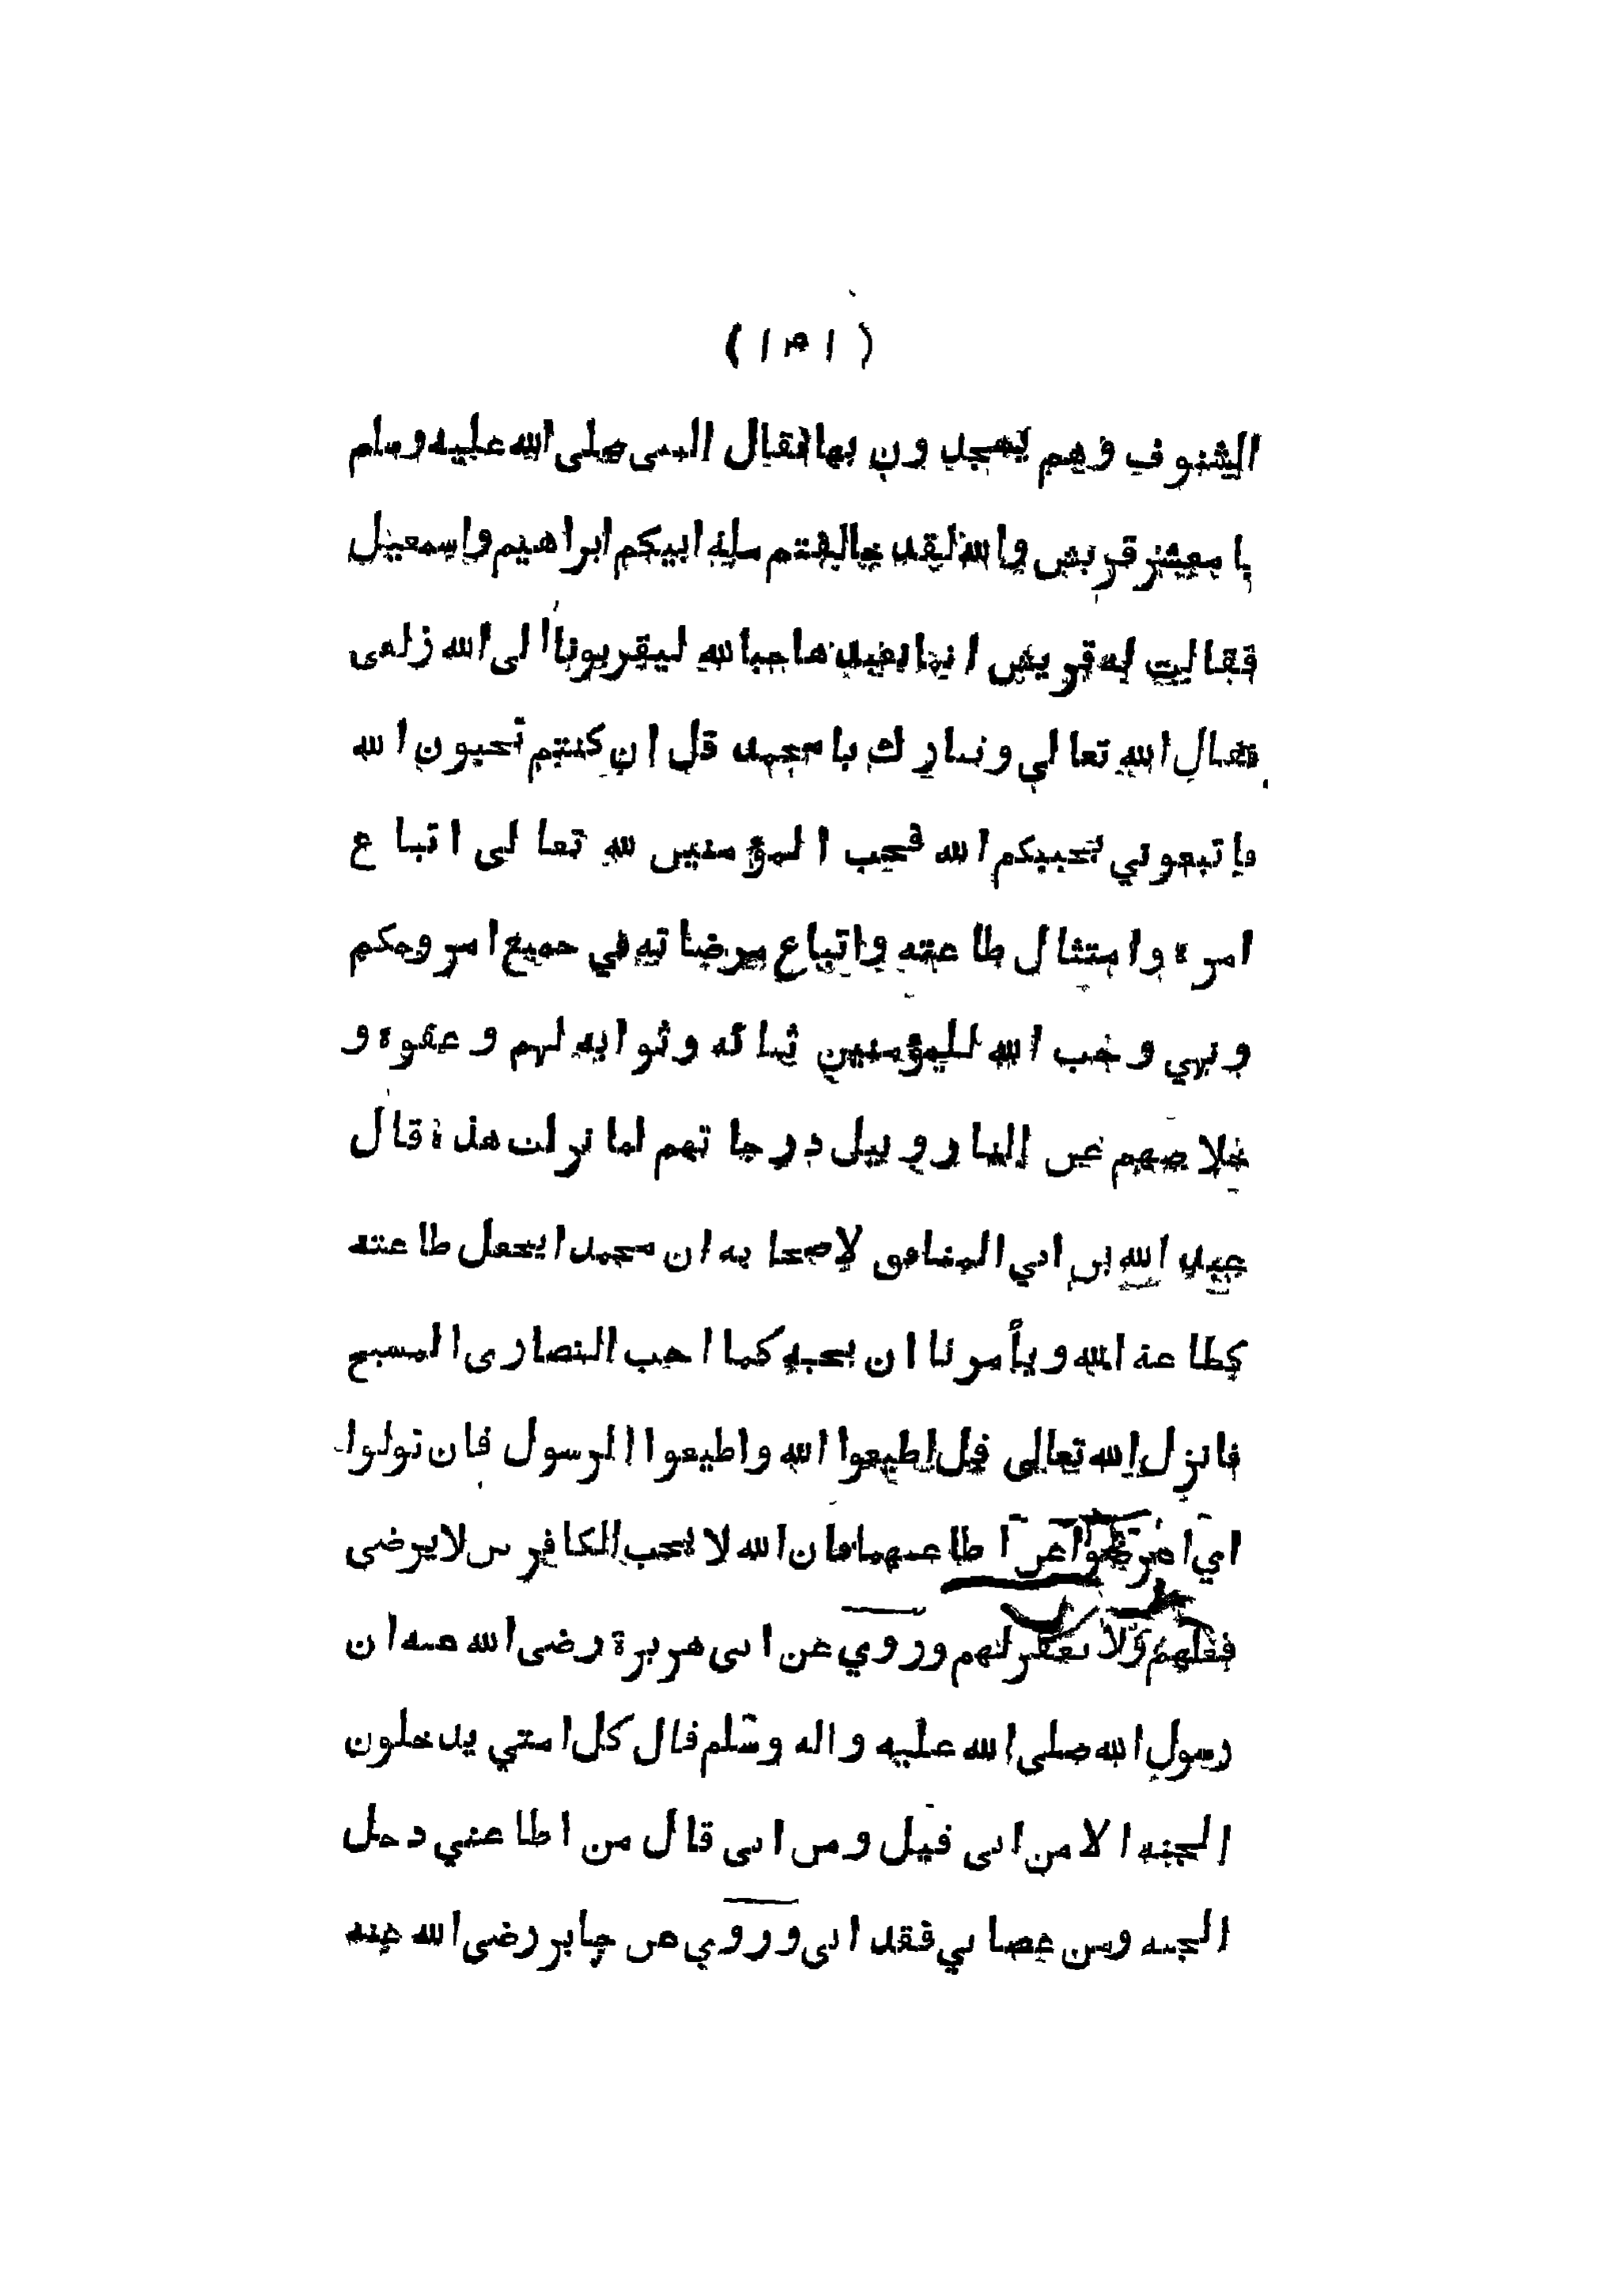 (١٣١)
الشنوف وهم يسجدون بها فقال النبى صلى الله عليه وسلم
يا معشر قريش والله لقد خالفتم ملة ابيكم ابراهيم واسمعيل
فقالت له قريش انما نعبدها حبا لله ليقربونا الى الله زلفى
فقال الله تعالى وتبارك يا محمد قل ان كنتم تحبون الله
فاتبعوني يحببكم الله فحب المؤمنين لله تعالى اتباع
امره وامتثال طاعته واتباع مرضاته في جميع امر وحكم
ونهي وحب الله للمؤمنين ثنائه وثوابه لهم وعفوه و
خلاصهم عن النار ونيل درجاتهم لما نزلت هذه قال
عبد الله بن ابي المنافق لاصحابه ان محمدا يجعل طاعته
كطاعة الله ويأمرنا ان نحبه كما احب النصارى المسيح
فانزل الله تعالى قل اطيعوا الله واطيعوا الرسول فان تولوا
اي اعرضوا عن اطاعتهما فان الله لا يحب الكافرين لا يرضى
فعلهم ولا يغفر لهم وروي عن ابى هريرة رضى الله عنه ان
رسول الله صلى الله عليه واله وسلم قال كل امتي يدخلون
الجنه الا من ابى قيل ومن ابى قال من اطاعني دخل
الجنه ومن عصاني فقد ابى وروي عن جابر رضى الله عنه